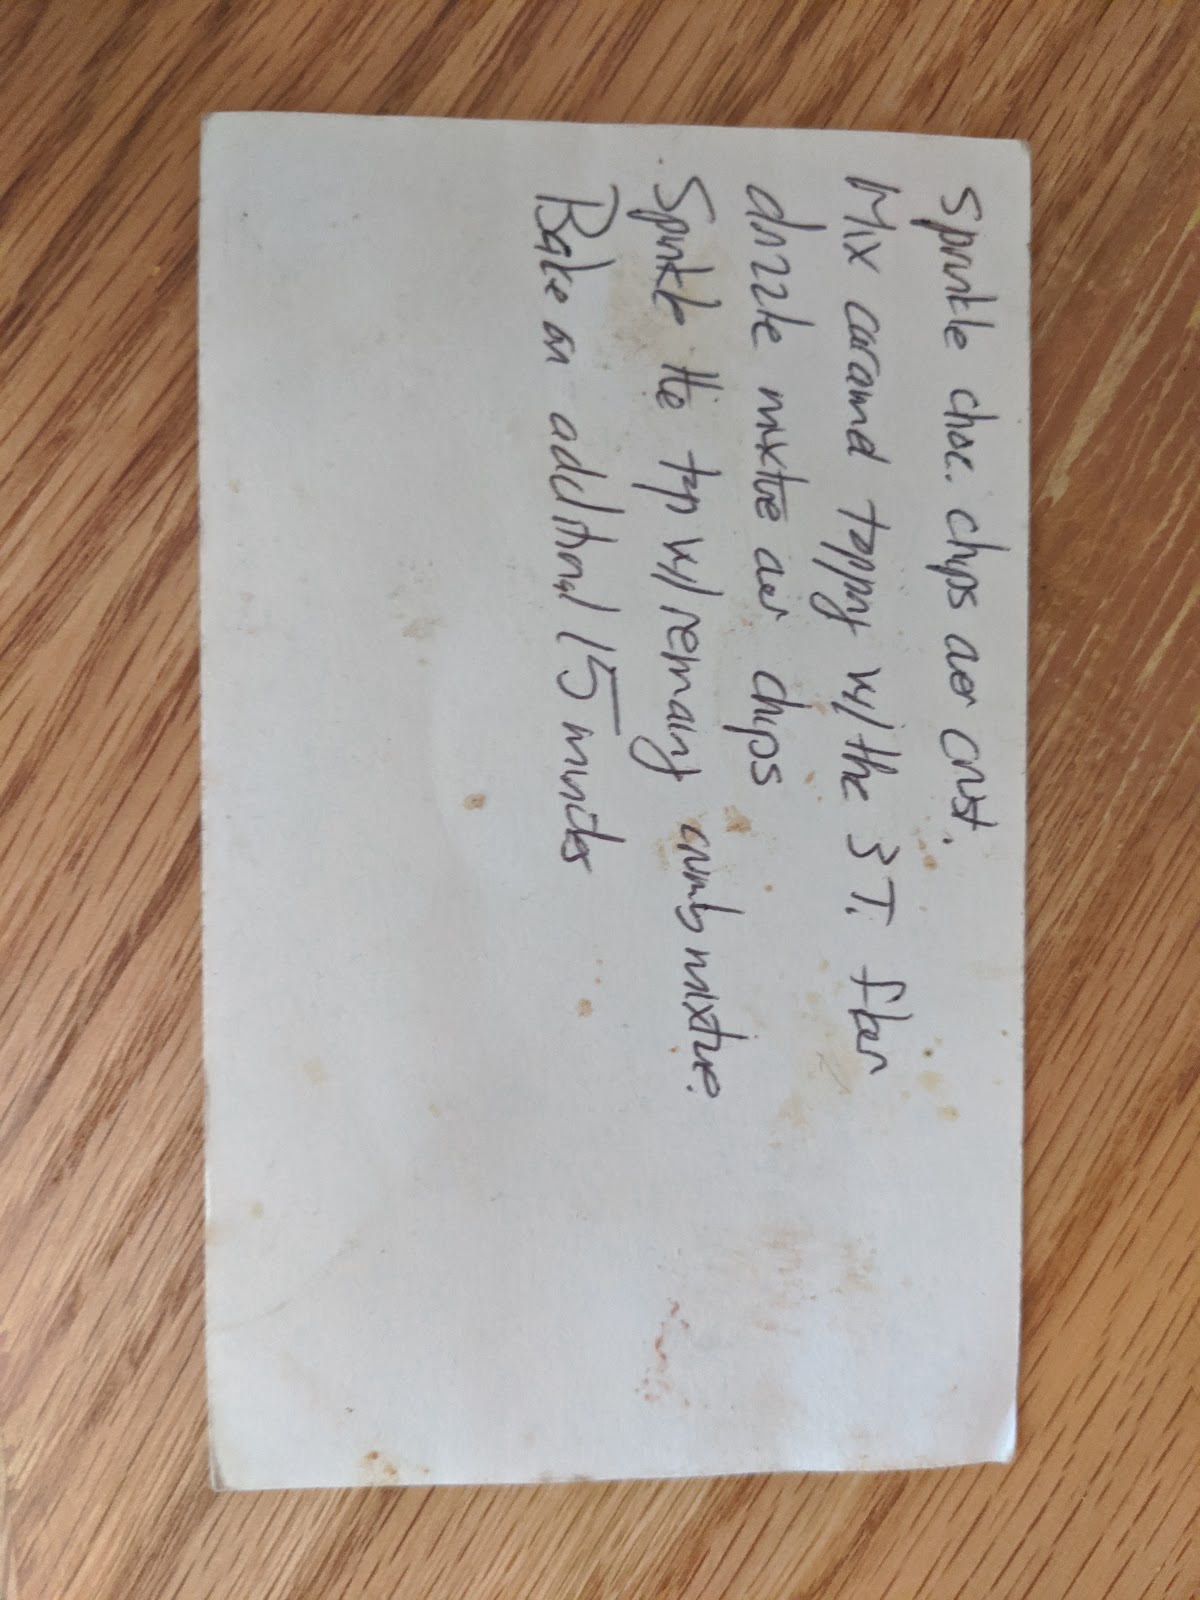 Sprinkle choc. chips over crust.
Mix caramel topping w/ the 3 T. flour
drizzle mixture over chips
Sprinkle the top w/ remaing crumb mixture.
Bake an additional 15 minutes